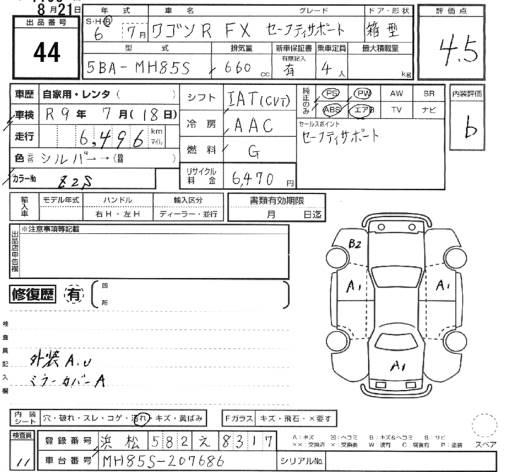 8月21日
出品番号 44
年式 S・H・R 6年 7月
車名 ワゴンR FX
グレード セーフティサポート
ドア・形状 箱型
評価点 4.5
型式 5BA-MH85S
排気量 660 cc
新車保証書 有無記入 有
乗車定員 4人
最大積載量 kg
車歴 自家用・レンタ( )
車検 R9年 7月(18日)
走行 6,496 km マイル
色 シルバー→( )
カラーNo Z2S
シフト IAT(CVT)
冷房 AAC
燃料 G
リサイクル料金 6,470円
純正のみ PS PW AW BR
ABS エアB TV ナビ
セールスポイント
セーフティサポート
内装評価 b
輸入車 モデル年式 ハンドル 右H・左H 輸入区分 ディーラー・並行
書類有効期限 月 日迄
出品店申告欄 ※注意事項等記載
修復歴 有
箇所
検査員記入欄
外装A.U
ミラーカバーA
B2
A1
A1
A1
内装シート 穴・破れ・スレ・コゲ・汚れ・キズ・黄ばみ
Fガラス キズ・飛石・X要す
スペア
検査員 11
登録番号 浜松 582 え 8317
車台番号 MH85S-207686
シリアルNo.